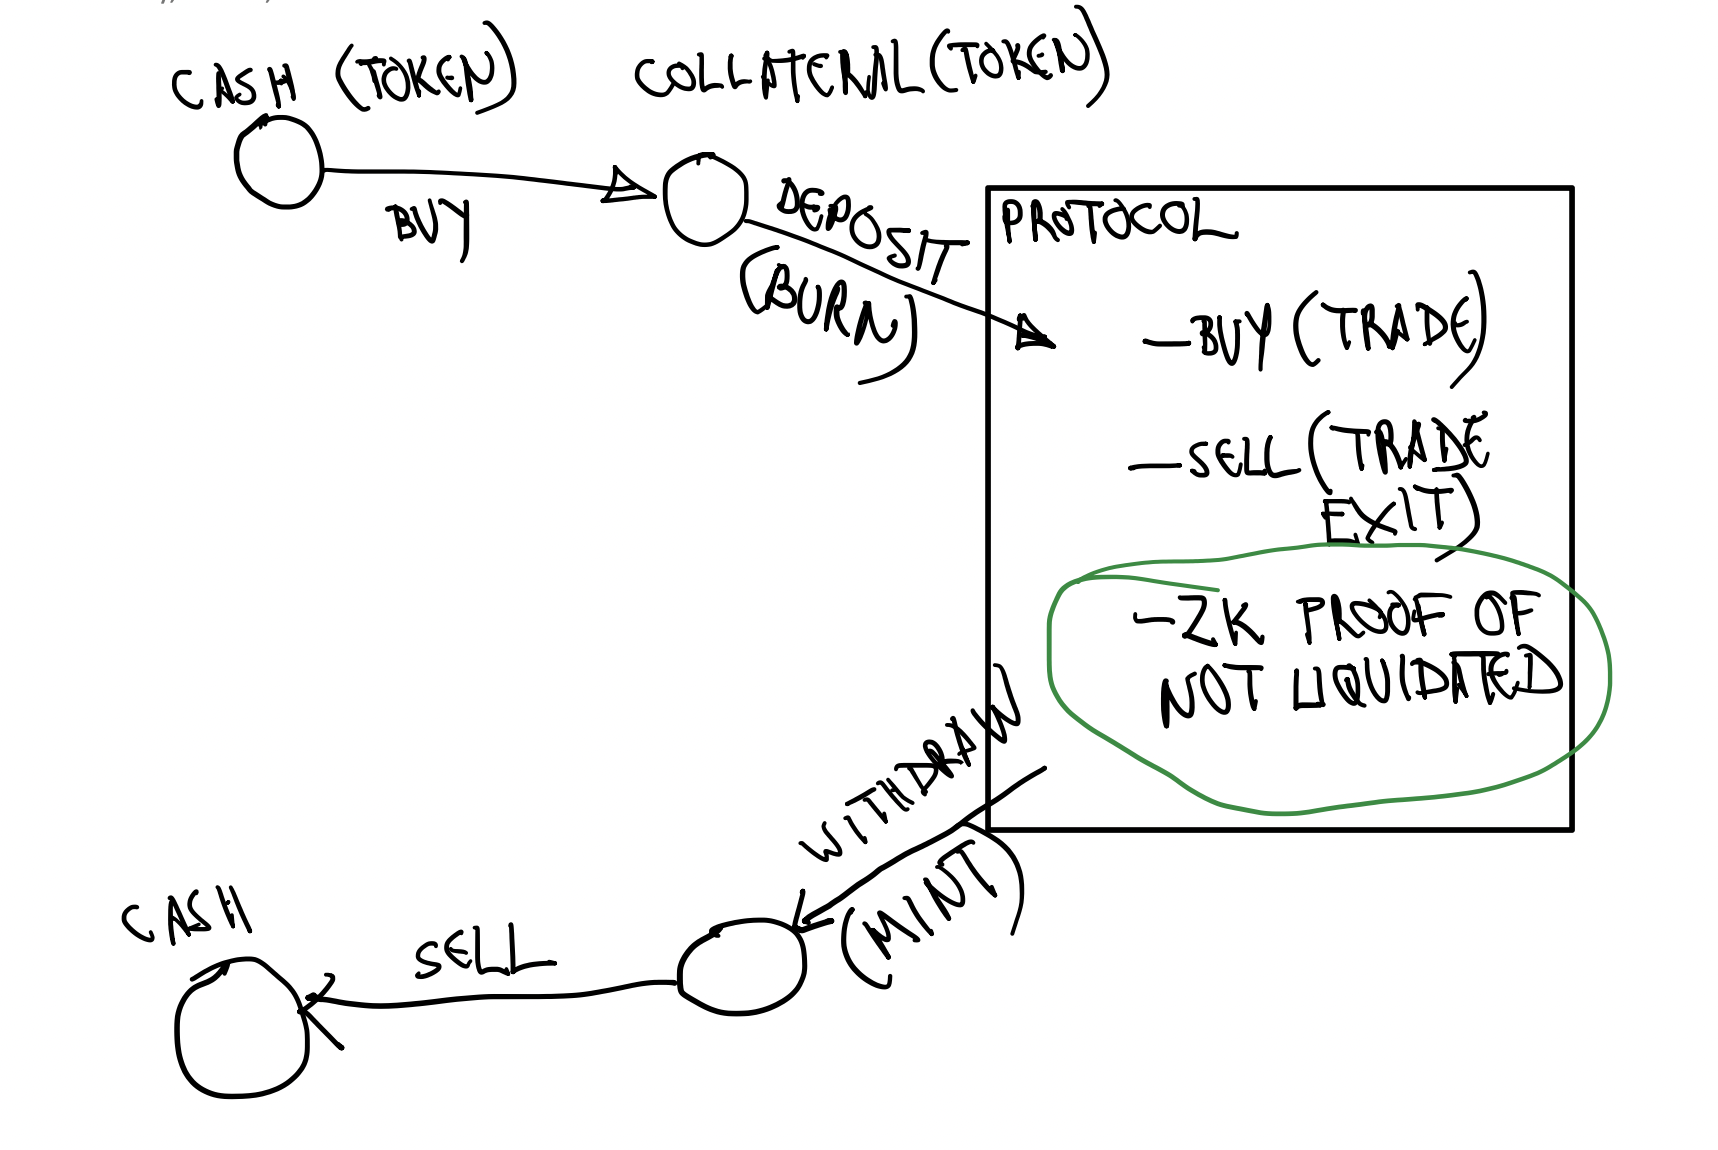 CASH (TOKEN)
COLLATERAL (TOKEN)
BUY
DEPOSIT
(BURN)
PROTOCOL
- BUY (TRADE)
- SELL (TRADE
EXIT)
- ZK PROOF OF
NOT LIQUIDATED
WITHDRAW
(MINT)
SELL
CASH